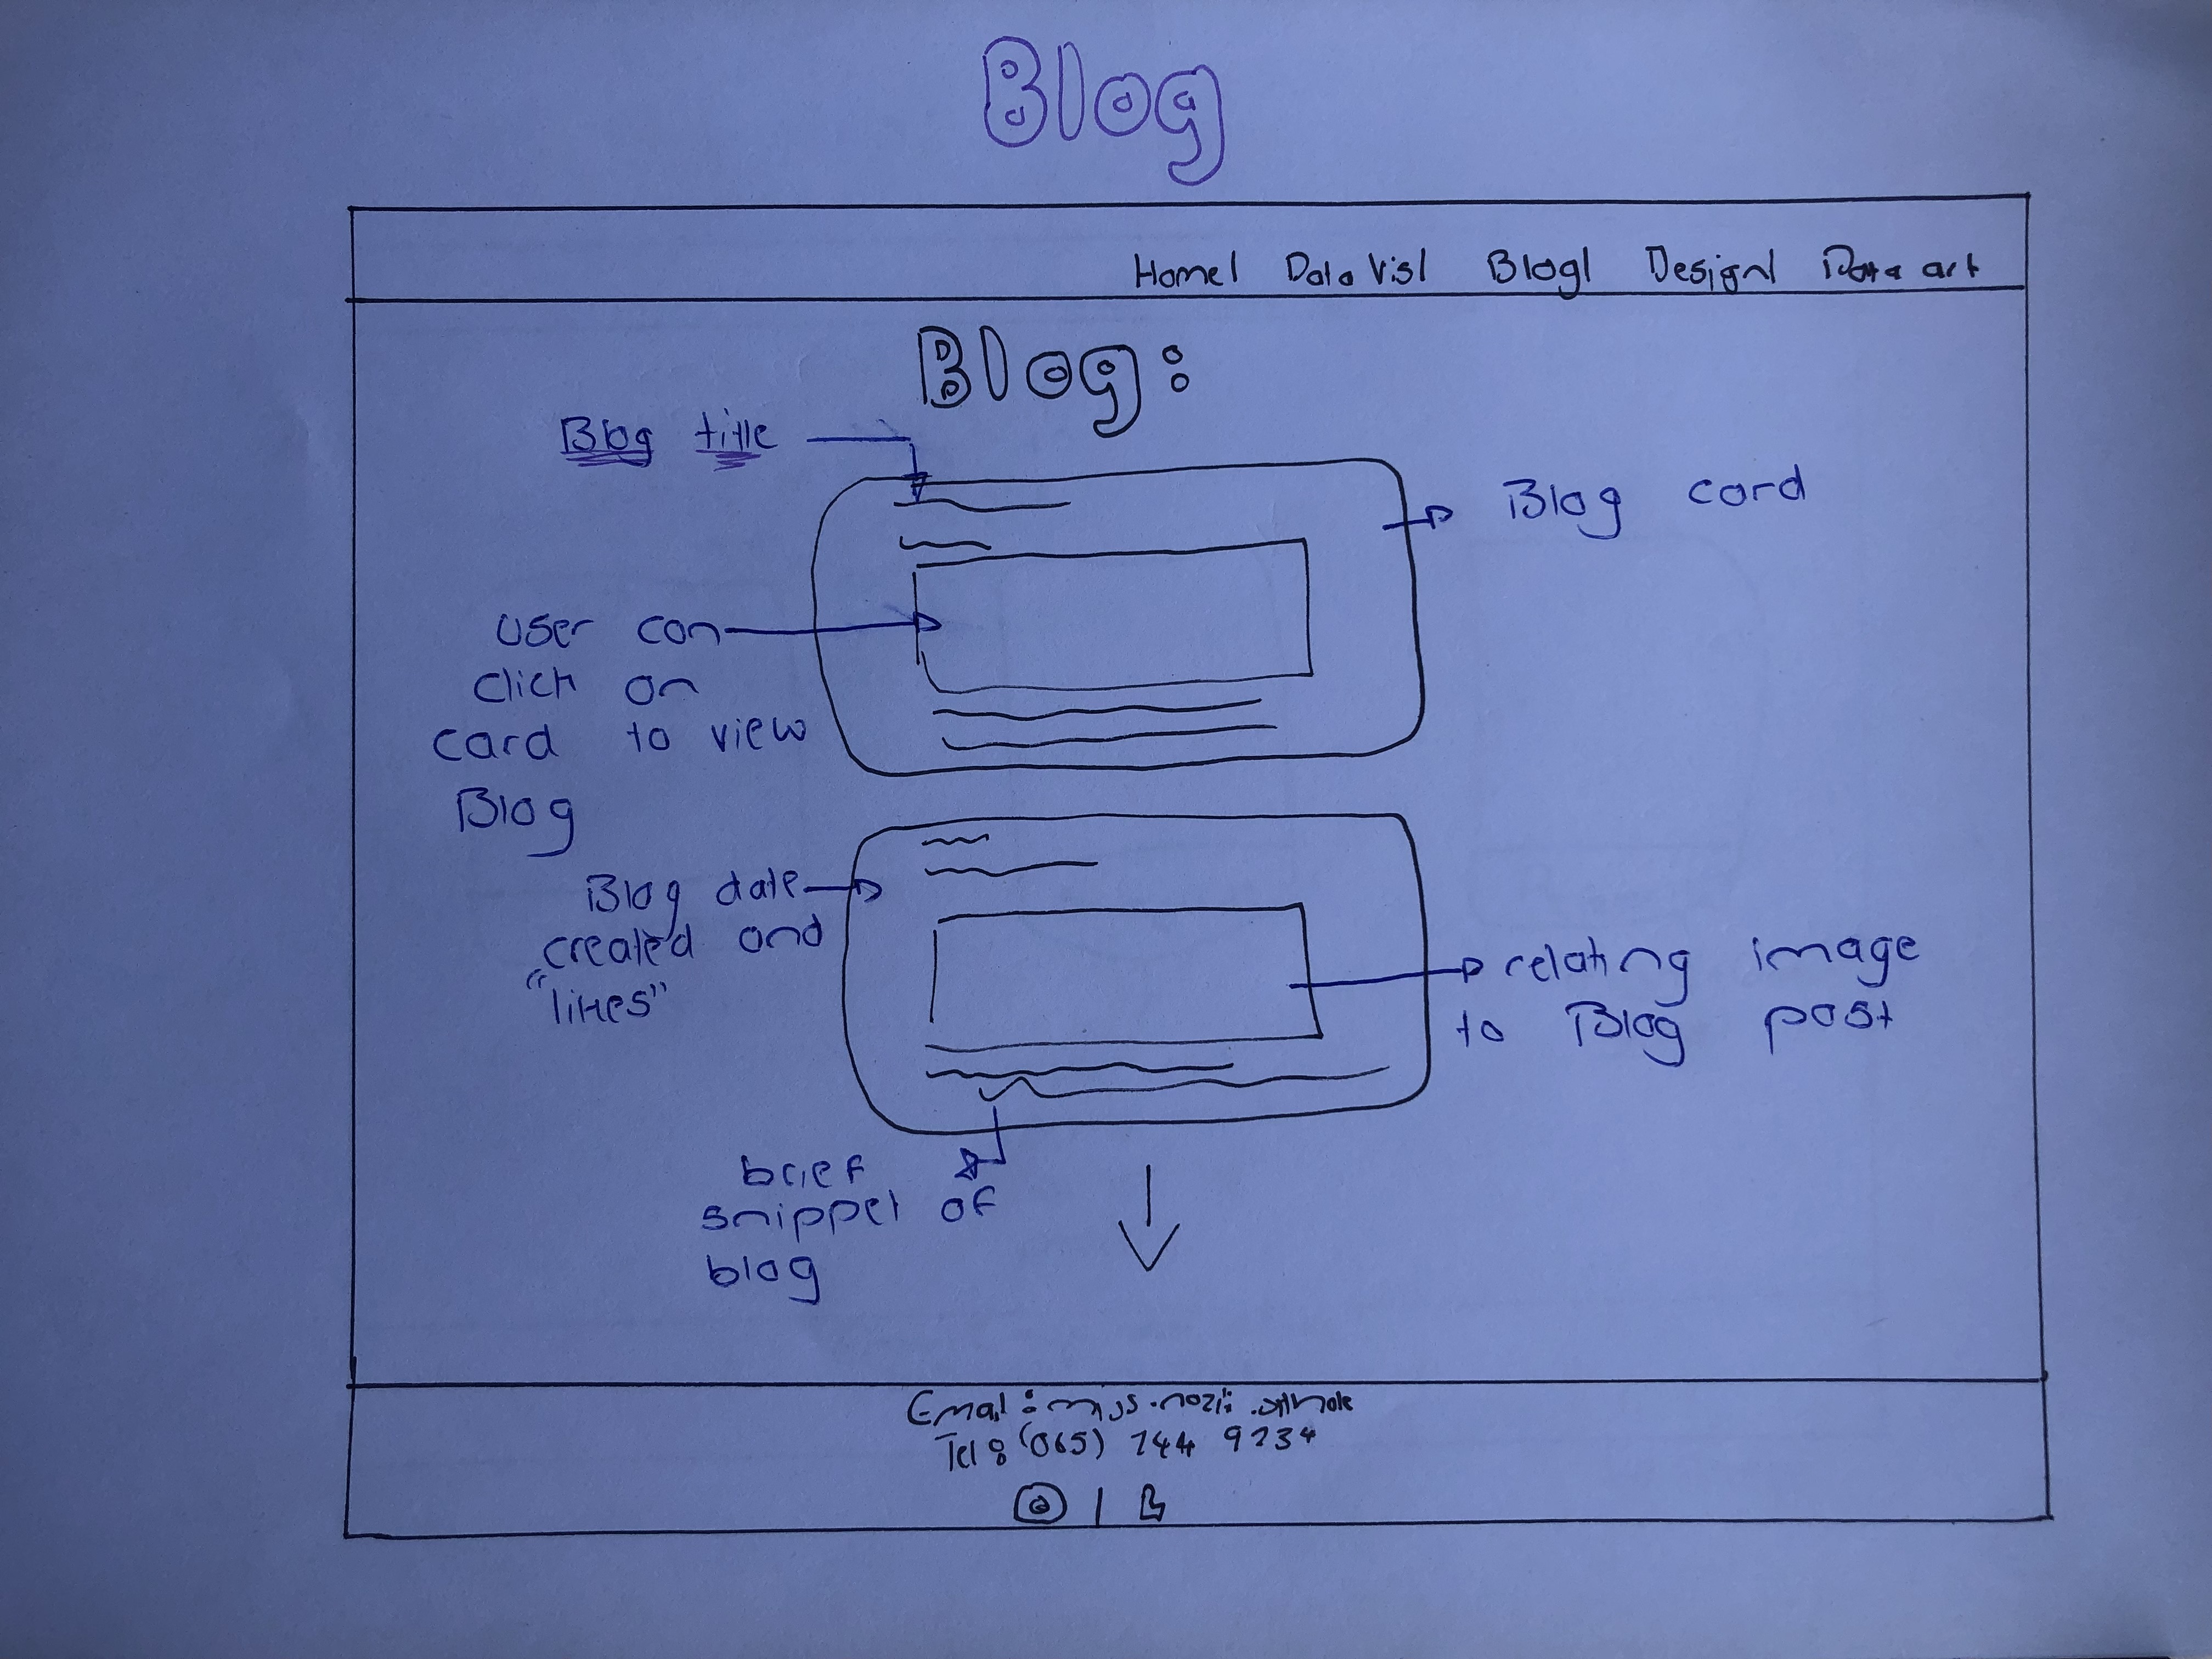 Blog
Home| Data Vis| Blog| Design| Data art
Blog:
Blog title
Blog card
user can
click on
card to view
Blog
Blog date
created and
"likes"
relating image
to Blog post
brief
snippet of
blog
Email: miss.nozi.
Tel: (065) 744 9234